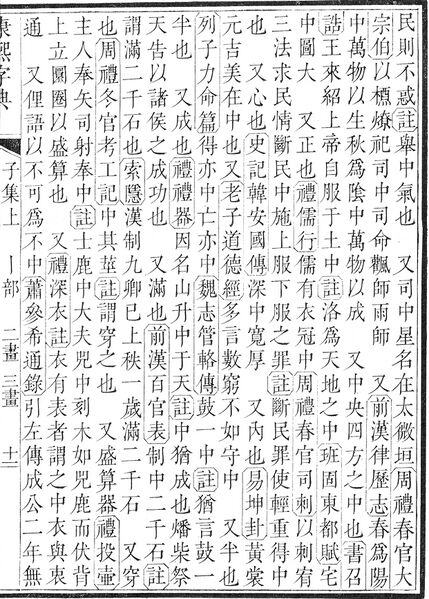 民則不惑註舉中氣也　又司中星名在太微垣周禮春官大
宗伯以槱燎祀司中司命飌師雨師　又前漢律歷志春爲陽
中萬物以生秋爲陰中萬物以成　又中央四方之中也書召
誥王來紹上帝自服于土中註洛爲天地之中班固東都賦宅
中圖大　又正也禮儒行儒有衣冠中周禮春官司刺以刺宥
三法求民情斷民中施上服下服之罪註斷民罪使輕重得中
也　又心也史記韓安國傳深中寬厚　又內也易坤卦黃裳
元吉美在中也又老子道德經多言數窮不如守中　又半也
列子力命篇得亦中亡亦中魏志管輅傳鼓一中註猶言鼓一
半也　又成也禮禮器因名山升中于天註中猶成也燔柴祭
天告以諸侯之成功也　又滿也前漢百官表制中二千石註
謂滿二千石也索隱漢制九卿已上秩一歲滿二千石　又穿
也周禮冬官考工記中其莖註謂穿之也　又盛算器禮投壷
主人奉矢司射奉中註士鹿中大夫兕中刻木如兕鹿而伏背
上立圜圈以盛算也　又禮深衣註衣有表者謂之中衣與衷
通　又俚語以不可爲不中蕭參希通錄引左傳成公二年無
康熙字典　子集上　丨部　二畫三畫　十一